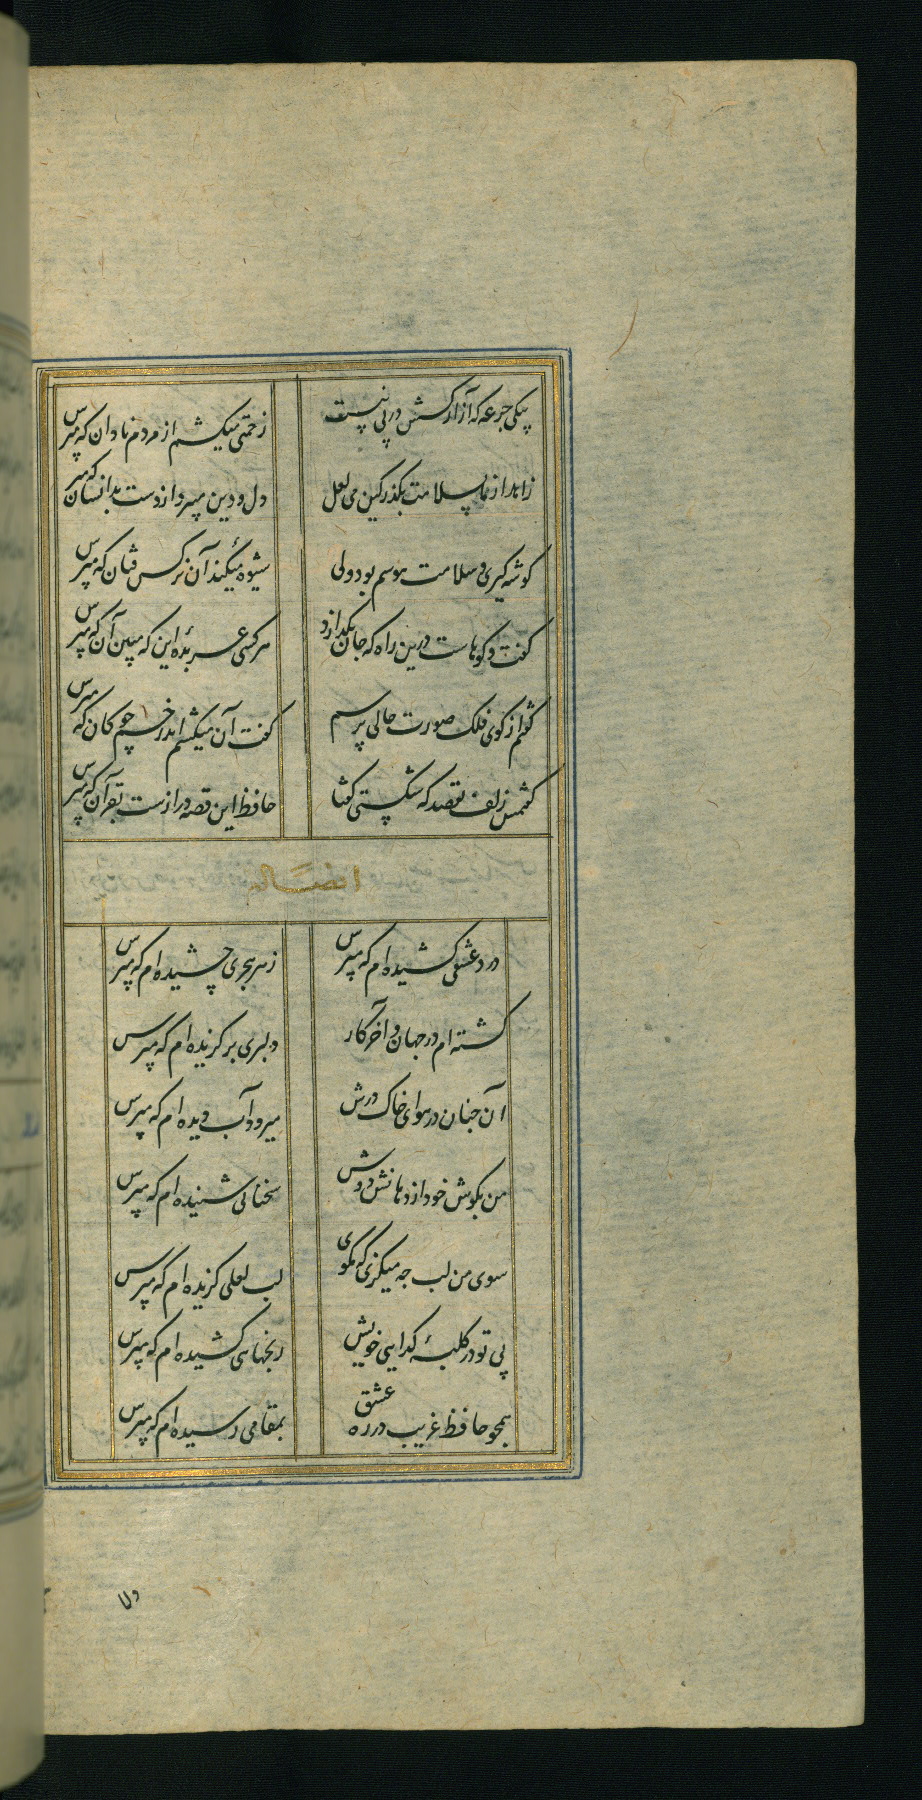 بیکی جرعه که آزار کسش در پی نیست
زحمتی میکشم از مردم نادان که مپرس
زاهد از ما بسلامت بگذر کین می لعل
دل و دین میبرد از دست بدانسان که مپرس
گوشه گیری و سلامت هوسم بود ولی
شیوه میکند آن نرگس فتان که مپرس
گفت و گوهاست درین راه که جان بگدازد
هر کسی عربده این که مبین آن که مپرس
گفتم از گوی فلک صورت حالی پرسم
گفت آن میکشم اندر خم چوگان که مپرس
گفتمش زلف بقصد که شکستی گفتا
حافظ این قصه درازست بقرآن که مپرس
ایضا له
درد عشقی کشیده ام که مپرس
زهر هجری چشیده ام که مپرس
گشته ام در جهان و آخر کار
دلبری برگزیده ام که مپرس
آن چنان در هوای خاک درش
میرود آب دیده ام که مپرس
من بگوش خود از دهانش دوش
سخنانی شنیده ام که مپرس
سوی من لب چه میگزی که مگوی
لب لعلی گزیده ام که مپرس
بی تو در کلبهٔ گدایی خویش
رنجهایی کشیده ام که مپرس
همچو حافظ غریب در ره عشق
بمقامی رسیده ام که مپرس